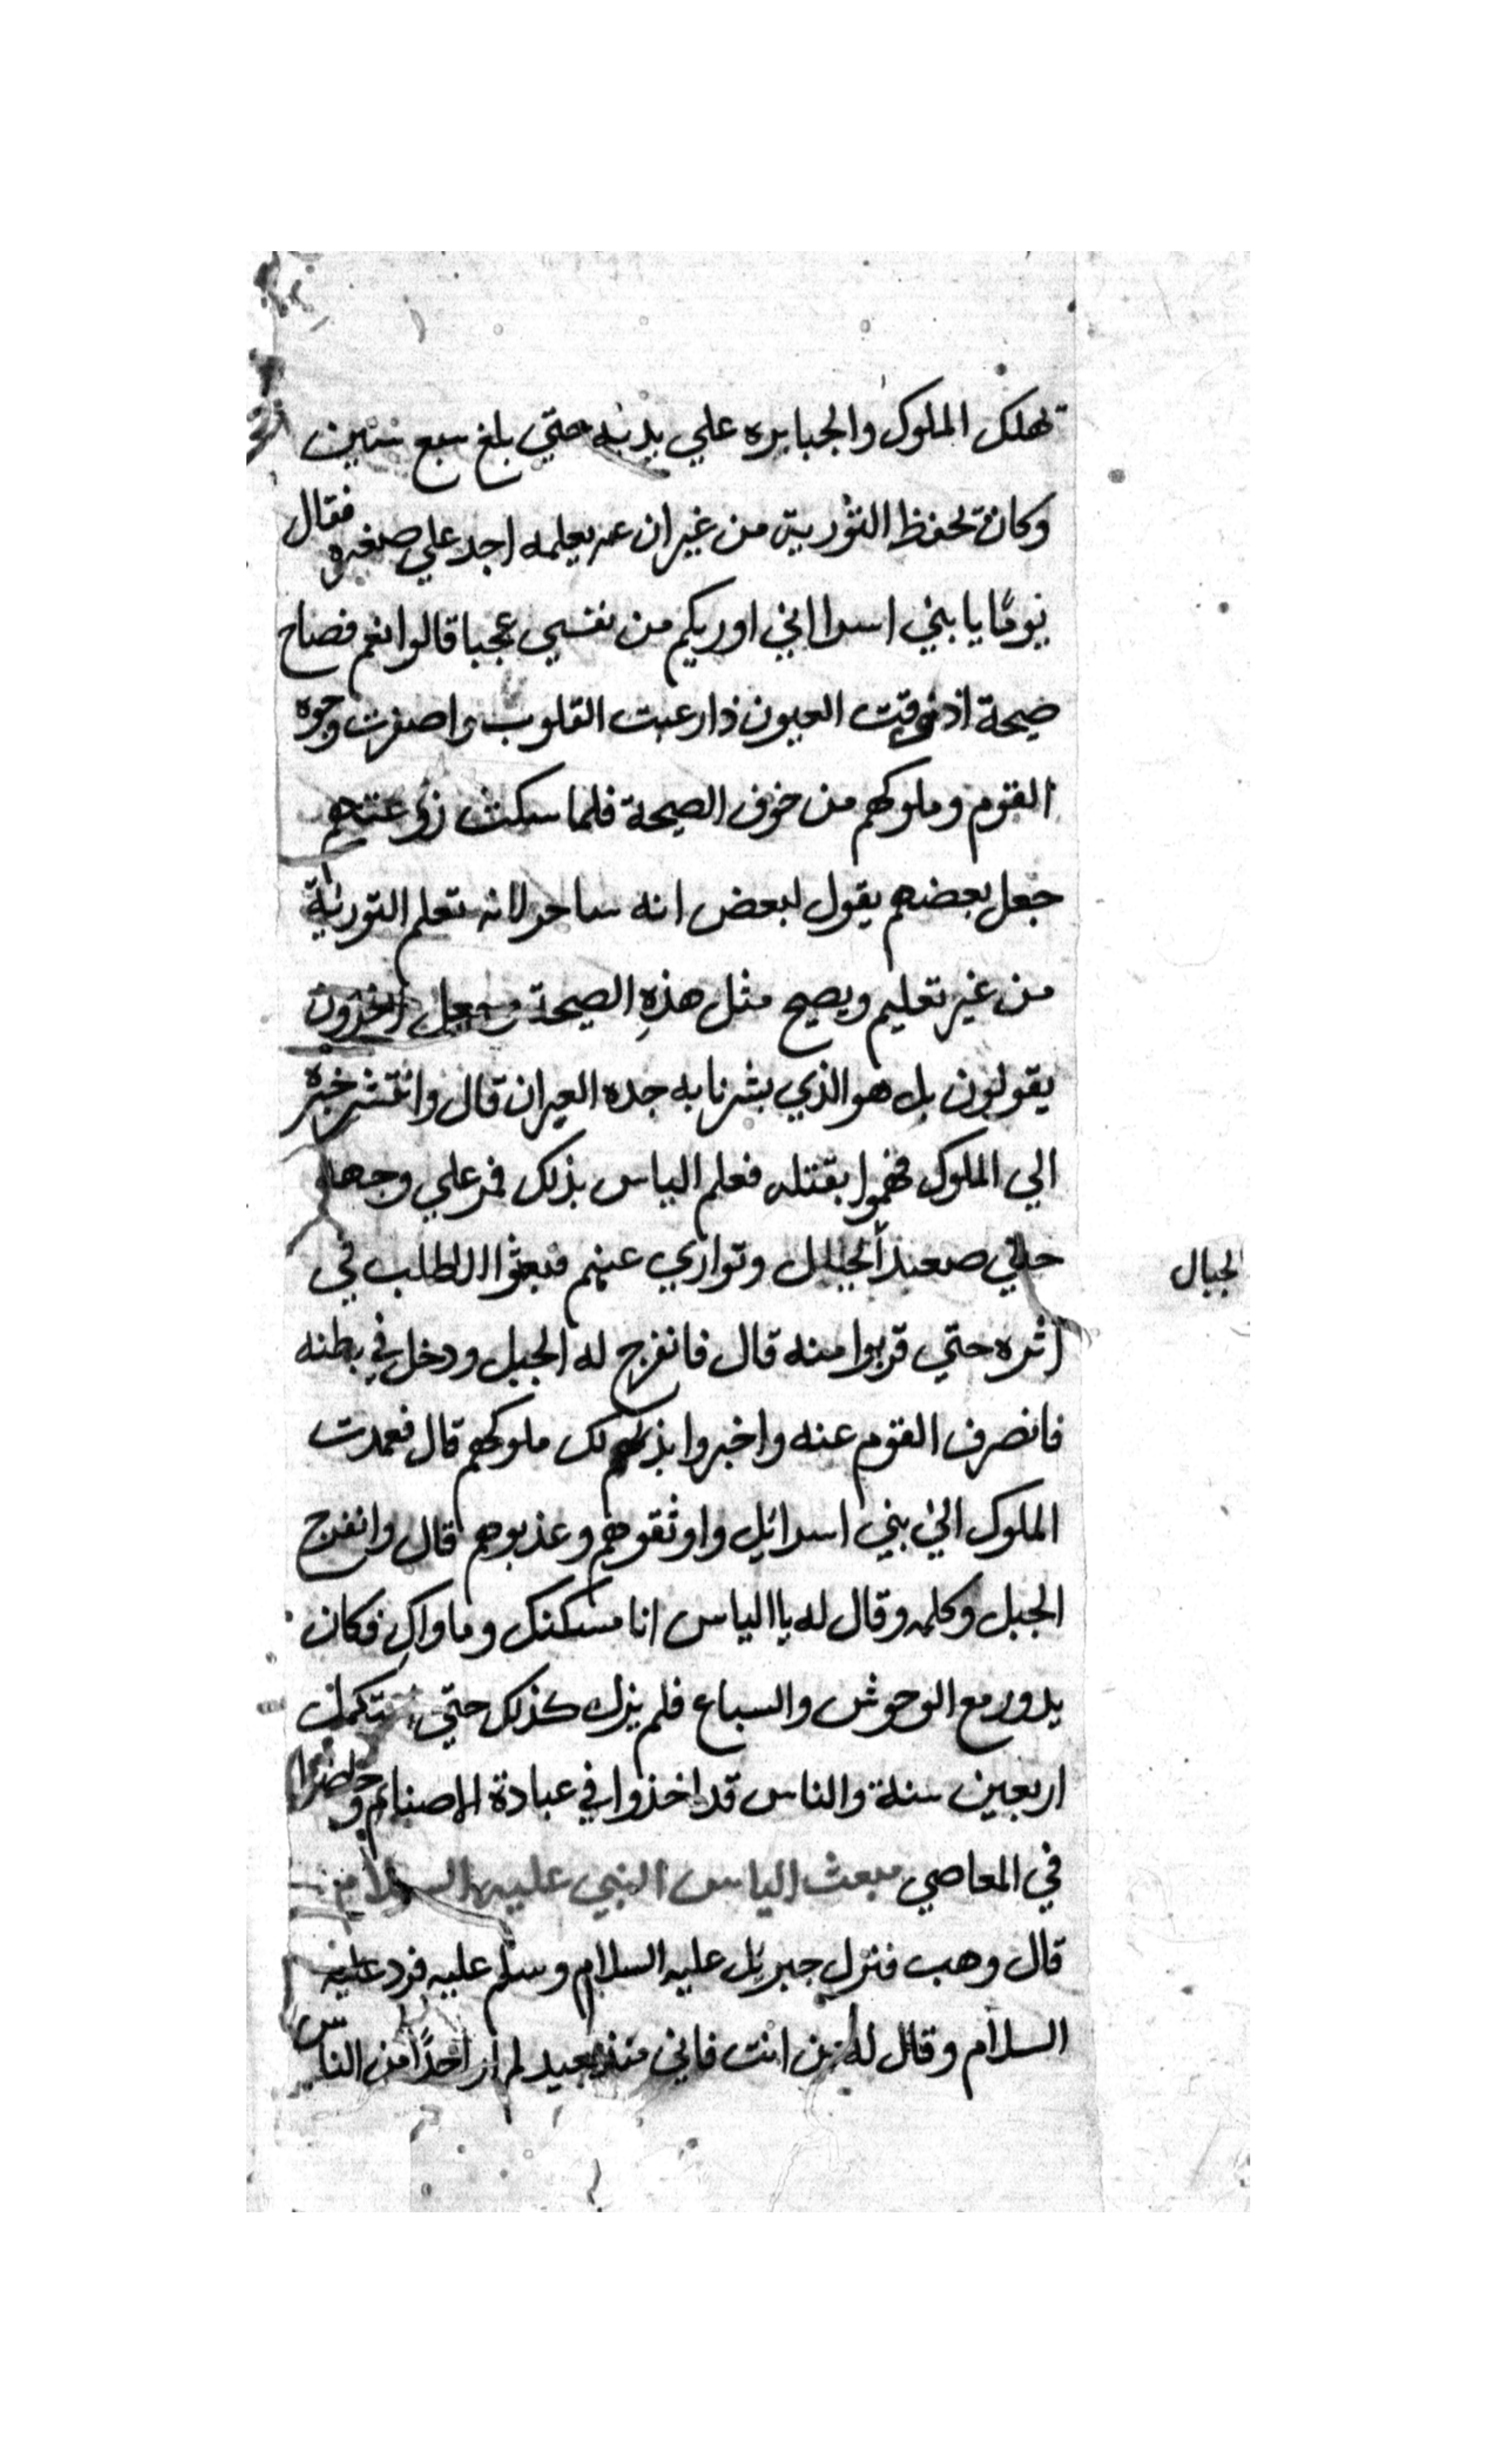 تهلك الملوك والجبابره علي يديه حتي بلغ سبع سنين
وكان يحفظ التورية من غير ان يعلمه احد علي صغره فقال
يومًا يا بني اسراايل اوريكم من نفسي عجبا قالوا نعم فصاح
صيحة العيون ذارعبت القلوب واصفرت وجوه
القوم وملوكهم من خوف الصيحة فلما سكت زوعتهم
جعل بعضهم يقول لبعض انه ساحر لانه تعلم التورية
من غير تعليم ويصيح مثل هذهِ الصيحة وجعل اخرون
يقولون بل هو الذي بشرنا به جده العيران قال وانتشر خبره
الي الملوك فهموا بقتله فعلم الياس بذلك فمر علي وجهه
حتي صعد الجبال وتواري عنهم فبعثوا الطلب في
الجبال
اثره حتي قربوا منه قال فانفرج له الجبل ودخل في بطنه
فانصرف القوم عنه واخبروا بذلك ملوكهم قال فعمدت
الملوك الي بني اسرائيل واوثقوهم وعذبوهم قال وانفرج
الجبل وكلمه وقال له يا الياس انا مسكنك وماواكِ فكان
يدور مع الوحوش والسباع فلم يزل كذلك حتي تكملت
اربعين سنة والناس قد اخذوا في عبادة الاصنام
في المعاصي مبعث الياس النبي عليه السلام
قال وهب فنزل جبريل عليه السلام وسلم عليه فرد عليه
السلام وقال له من انت فاني منذ بعيد لم ار احدًا من الناس